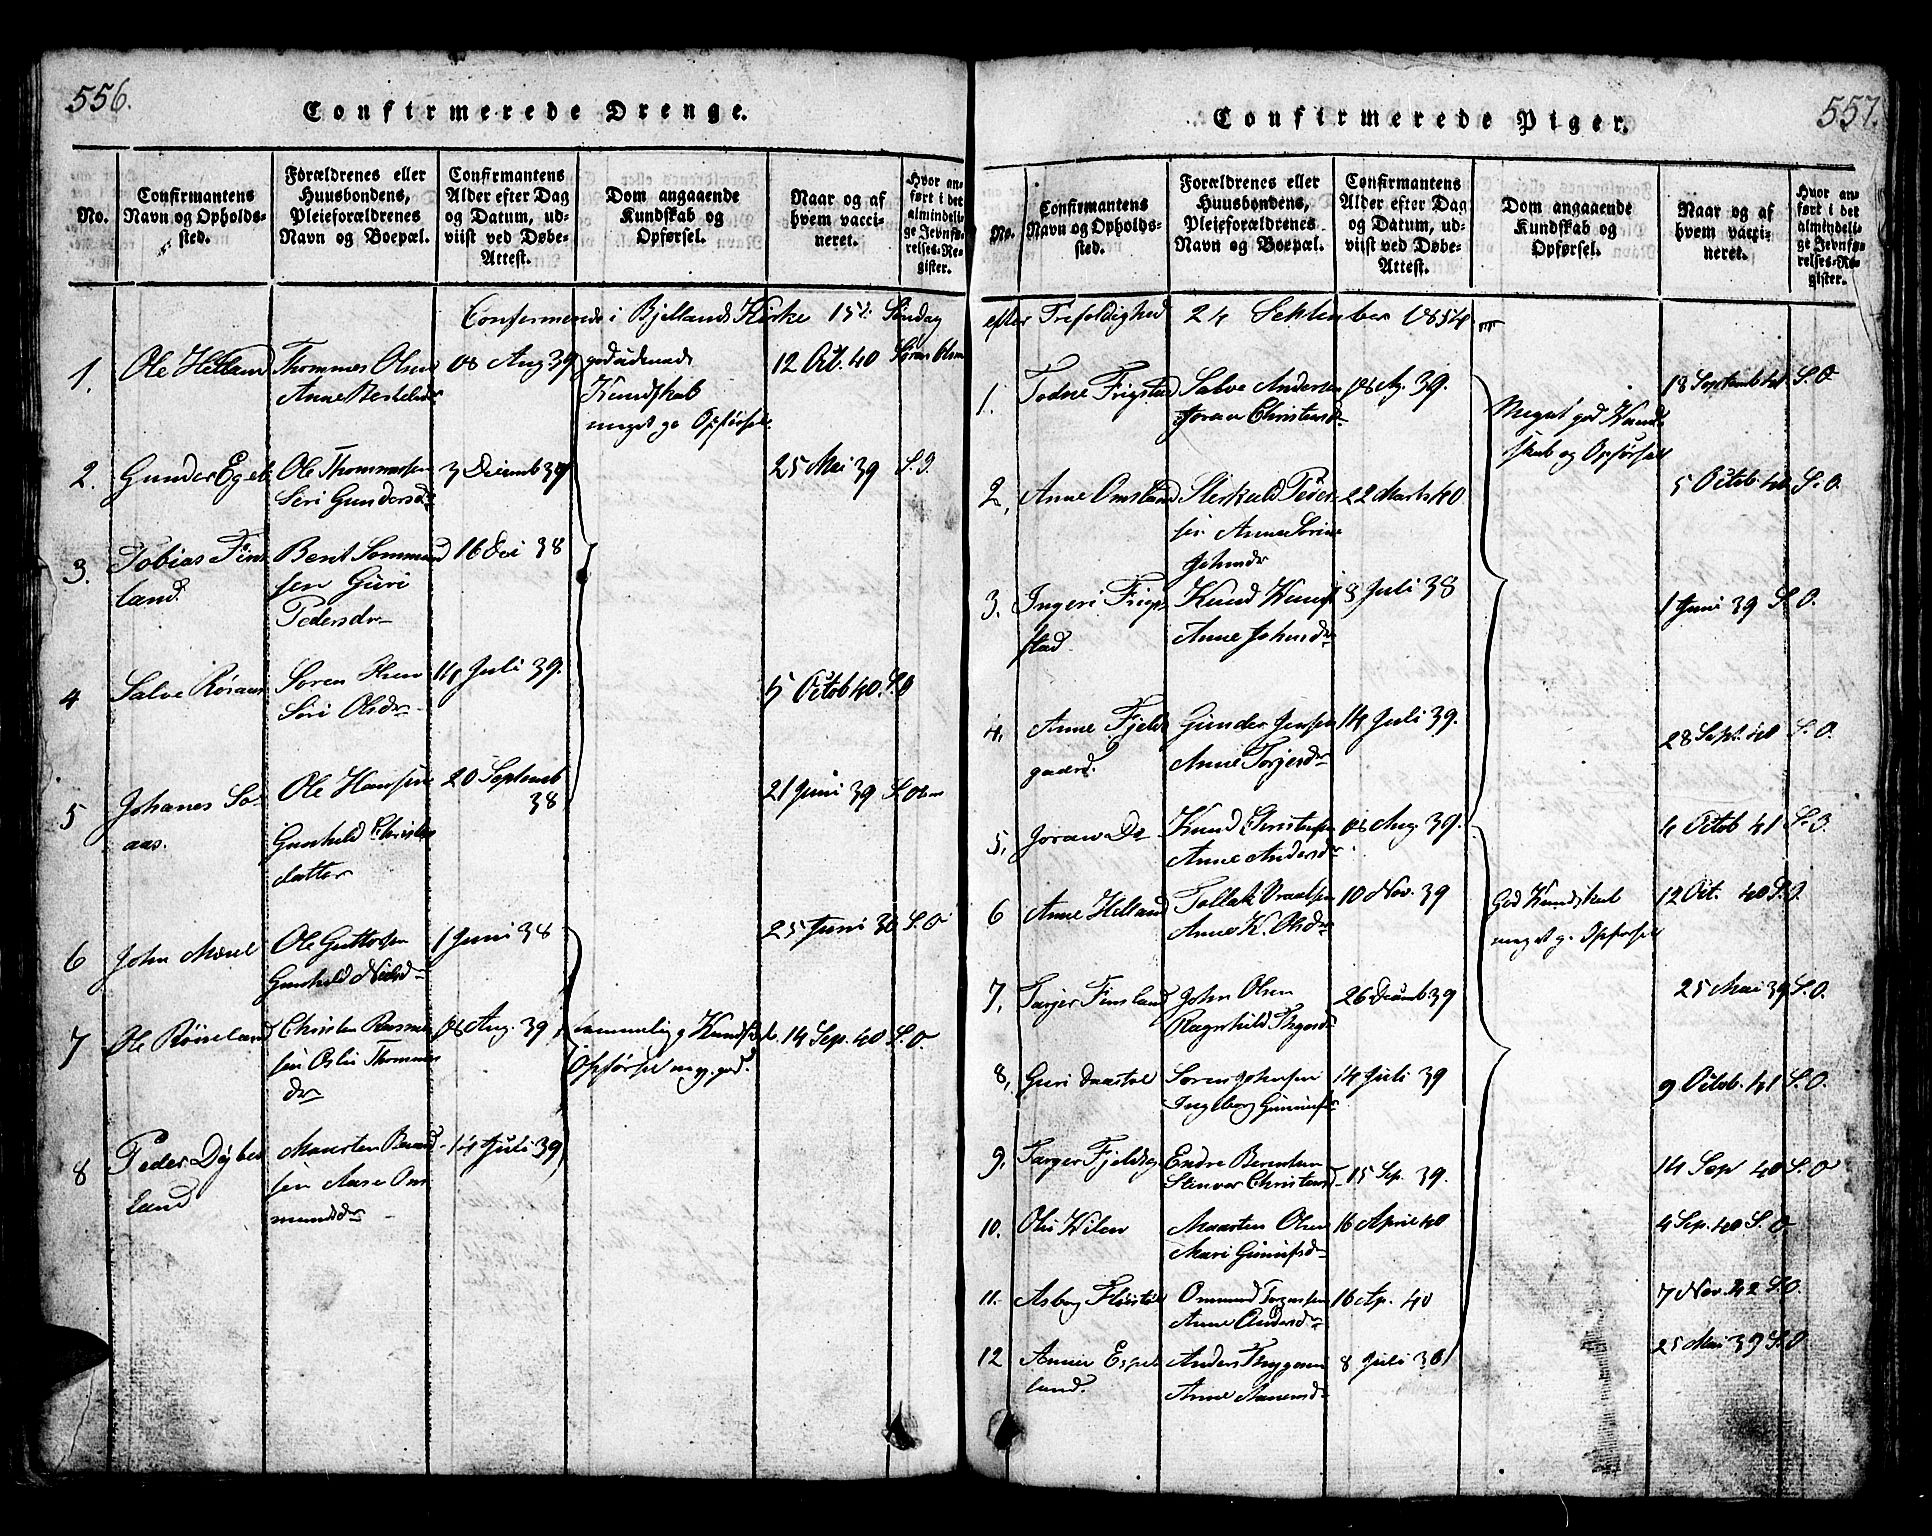 556.
Confirmerede Drenge.
No.
Confirmantens
Navn og Opholds-
sted.
Forældrenes eller
Huusbondens,
Pleieforældrenes
Navn og Boepæl.
Confirmantens
Alder efter Dag
og Datum, ud-
viist ved Døbe-
Attest.
Dom angaaende
Kundskab og
Opførsel.
Naar og af
hvem vacci-
neret.
Hvor an-
ført i det
almindeli-
ge Jevnfø-
relses-Re-
gister.
Confermerede i Bjellands Kirke 15. Søndag
1.
Ole Helland
Thommes Olsen
Anne
18 Aug 39
Kundskab
meget go Opførsel
12 Oct. 40
2.
Gunder Egel
Ole Thommesen
Siri Gundersd
3 Decemb 39
25 Mai 39
3.
Tobias Fins
land
Bent Sommund
sen Guri
Pedersdr
16 Dec 38
4
Salve Røraas
Søren Olsen
Siri Olsdr
14 Juli 39.
5 Octob 40. S. O
5
Johanes So-
aas.
Ole Hansen
Gunhild Christen
datter
20 Septemb
38
21 Juni 39
6
John
Ole Guttorsen
Gunhild Nielsd
1 Juni 38
25 Juni 38 S. O
7
Ole Røiseland
Christen Rasmus
sen Thommes
dr
18 Aug. 39
temmelig g Kundskab.
Opførsel meg. god.
14 Sep. 40 S. O.
8
Peder Døbes
land
Maarten
sen Aase Om
mundsdr
14 Juli 39
557.
Confirmerede Piger.
No.
Confirmantens
Navn og Opholds-
sted.
Forældrenes eller
Huusbondens,
Pleieforældrenes
Navn og Boepæl.
Confirmantens
Alder efter Dag
og Datum, ud-
viist ved Døbe-
Attest.
Dom angaaende
Kundskab og
Opførsel.
Naar og af
hvem vacci-
neret.
Hvor an-
ført i det
almindeli-
ge Jevnfø-
relses-Re-
gister.
efter Trefoldighed 24 September 1854
1.
Todne Frigstad
Salve Andersen
Joran Christensdr
18 Ag. 39.
Meget god Kund
skab og Opførsel
18 Septemb 41 S. O
2,
Anne Omsland
Sterkuld Peder
sen Anne Serine
Johnsdr
22 Marts 40
5 Octob 40 S. O.
3.
Ingeri Frig
stad
Knud Knuds
Anne Johnsdr
8 Juli 38
1 Juni 39 S. O.
4.
Anne Fjelds
gaard.
Gunder Jensen
Anne Torjesdr
14 Juli 39.
28 Sept. 40 S. O.
5,
Joran Do
Knud Christensen
Anne Andersdr
18 Aug 39.
4 Octob 41 S. O.
6
Anne Helland
Tollak Vraalsen
Anne K. Olsdr
10 Nov. 39
God Kundskab
meget g. Opførsel
12 Oct. 40 S. O.
7,
Tarjer Finsland
John Olsen
Ragnhild Thgersd
26 Decemb 39
25 Mai 39 S. O.
8,
Guri
Søren Johnsen
Ingeborg
14 Juli 39
9 Octob. 41 S. O.
9,
Targer Fjeldsg
Endre Berentsen
Stinver Christensd
15 Sep. 39.
14 Sep 40 S. O
10.
Maarten Olsen
Mari
16 April 40
4 Sep. 40 S. O
11.
Asborg
Ommund Torgersen
Anne Andersdr
16 Ap. 40
7 Nov. 42 S. O.
12
Espe
land.
Anders Thygesen
Anne Aanensdr
8 Juli 38
25 Mai 39 S. O